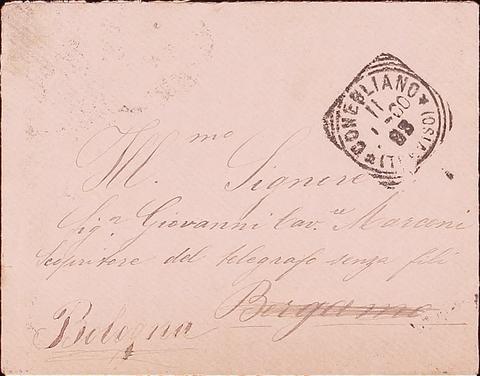 CONEGLIANO
Ill.mo Signore
Sig.r Giovanni Cav.re Marconi
Scopritore del telegrafo senza fili
Bergamo
Bologna